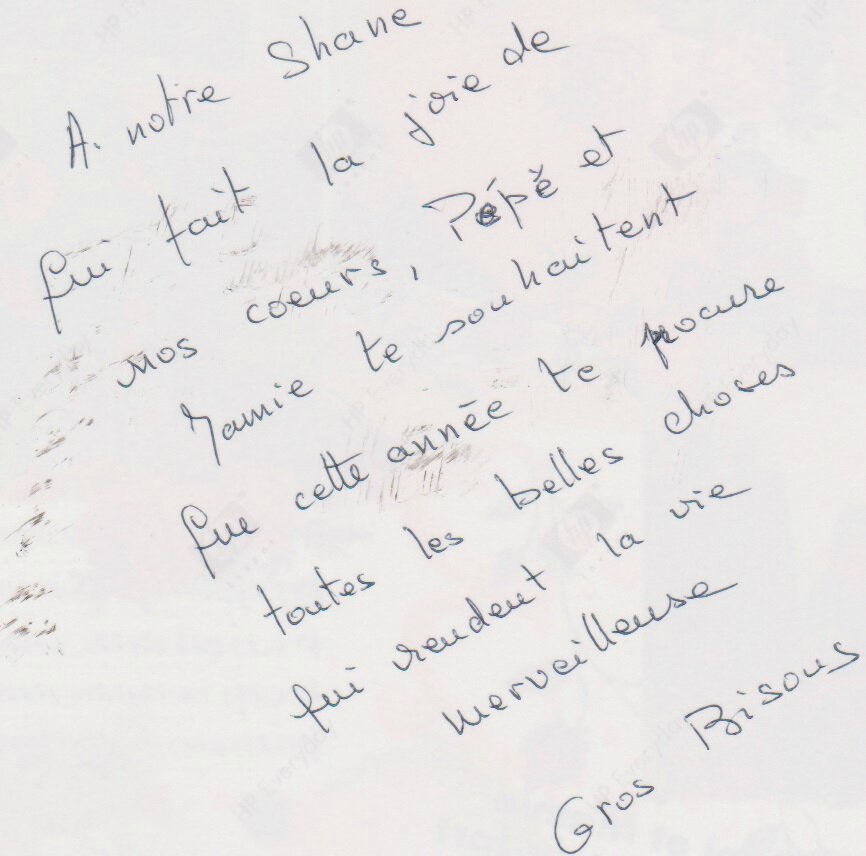 A. notre Shane
qui fait la joie de
nos coeurs, Pépé et
Mamie te souhaitent
que cette année te procure
toutes les belles choses
qui rendent la vie
merveilleuse
Gros Bisous